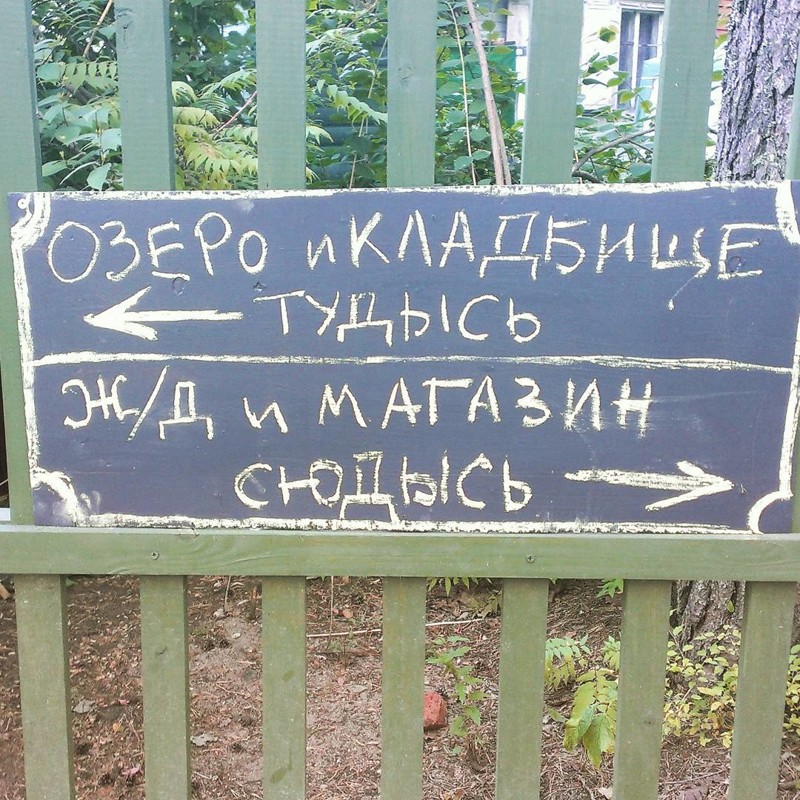 ОЗЕРО и КЛАДБИЩЕ
ТУДЫСЬ
Ж/Д и МАГАЗИН
СЮДЫСЬ